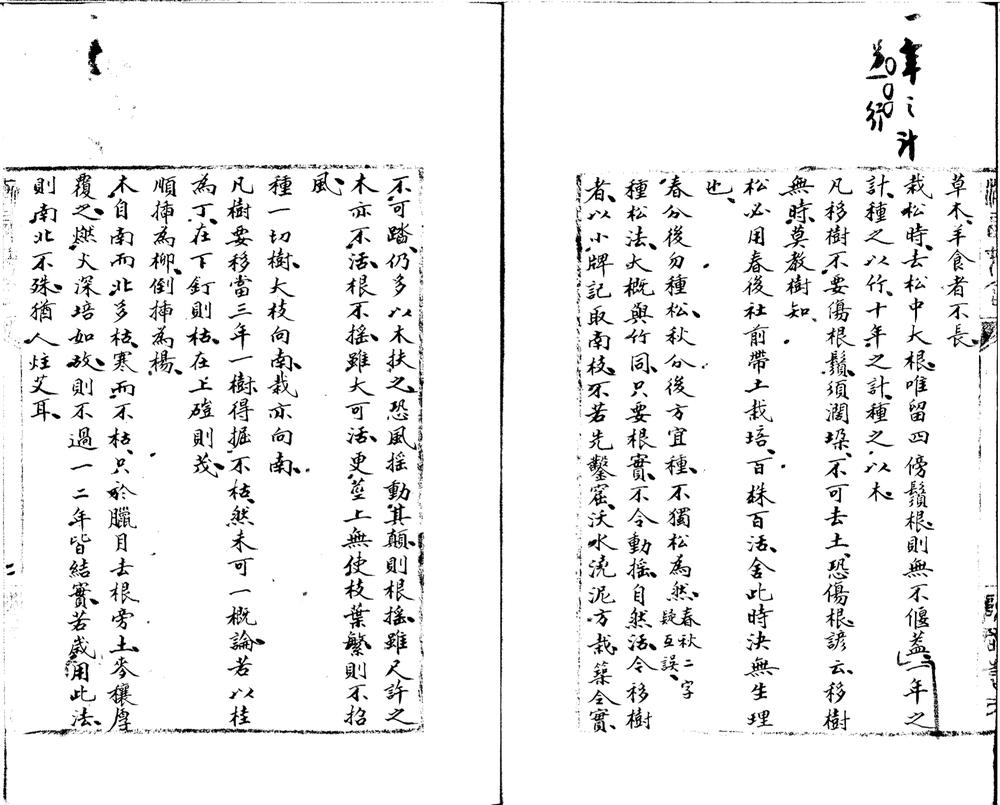 一年之計
另行
草木羊食者不長
栽松時去松中大根唯留四傍鬚根則無不偃蓋一年之
計種之以竹十年之計種之以木
凡移樹不要傷根鬚須濶垜不可去土恐傷根諺云移樹
無時莫教樹知
松必用春後社前帶土栽培百株百活舍此時決無生理
也
春分後勿種松秋分後方宜種不獨松為然春秋二字疑互誤
種松法大概與竹同只要根實不令動摇自然活令移樹
者以小牌記取南枝不若先鑿窟沃水澆泥方栽築令實
不可踏仍多以木扶之恐風摇動其顛則根摇雖尺許之
木亦不活根不摇雖大可活更莖上無使枝葉繁則不招
風
種一切樹大枝向南栽亦向南
凡樹要移當三年一樹得掘不枯然未可一概論若以桂
為丁在下釘則枯在上磑則茂
順揷為柳倒揷為楊
木自南而北多枯寒而不枯只於臘月去根旁土麥穰厚
覆之燃火深培如故則不過一二年皆結實若歲用此法
則南北不殊猶人炷艾耳